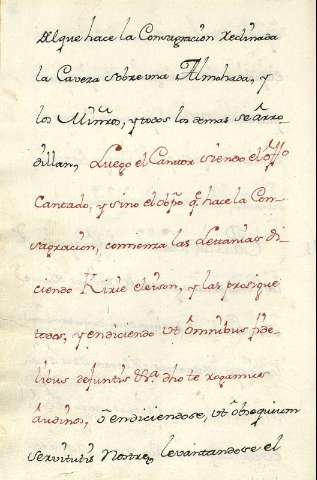 Del que hace la Consagracion reclinada
la Cavera sobre una Almohada, y
los Miñros, y todos los demas se arro-
dillan, Luego el Cantor siendo el offo
Cantado, y sino el obpo q̃. hace la Con-
sagracion, comienza las Lettanias di-
ciendo Kirie eleison, y las prosigue
todos, y endiciendo ut omnibus fide-
libus defuntis &a. dho te rogamus
audinos, o endiciendose, ut obsequium
servitutis Nostre levantandose el